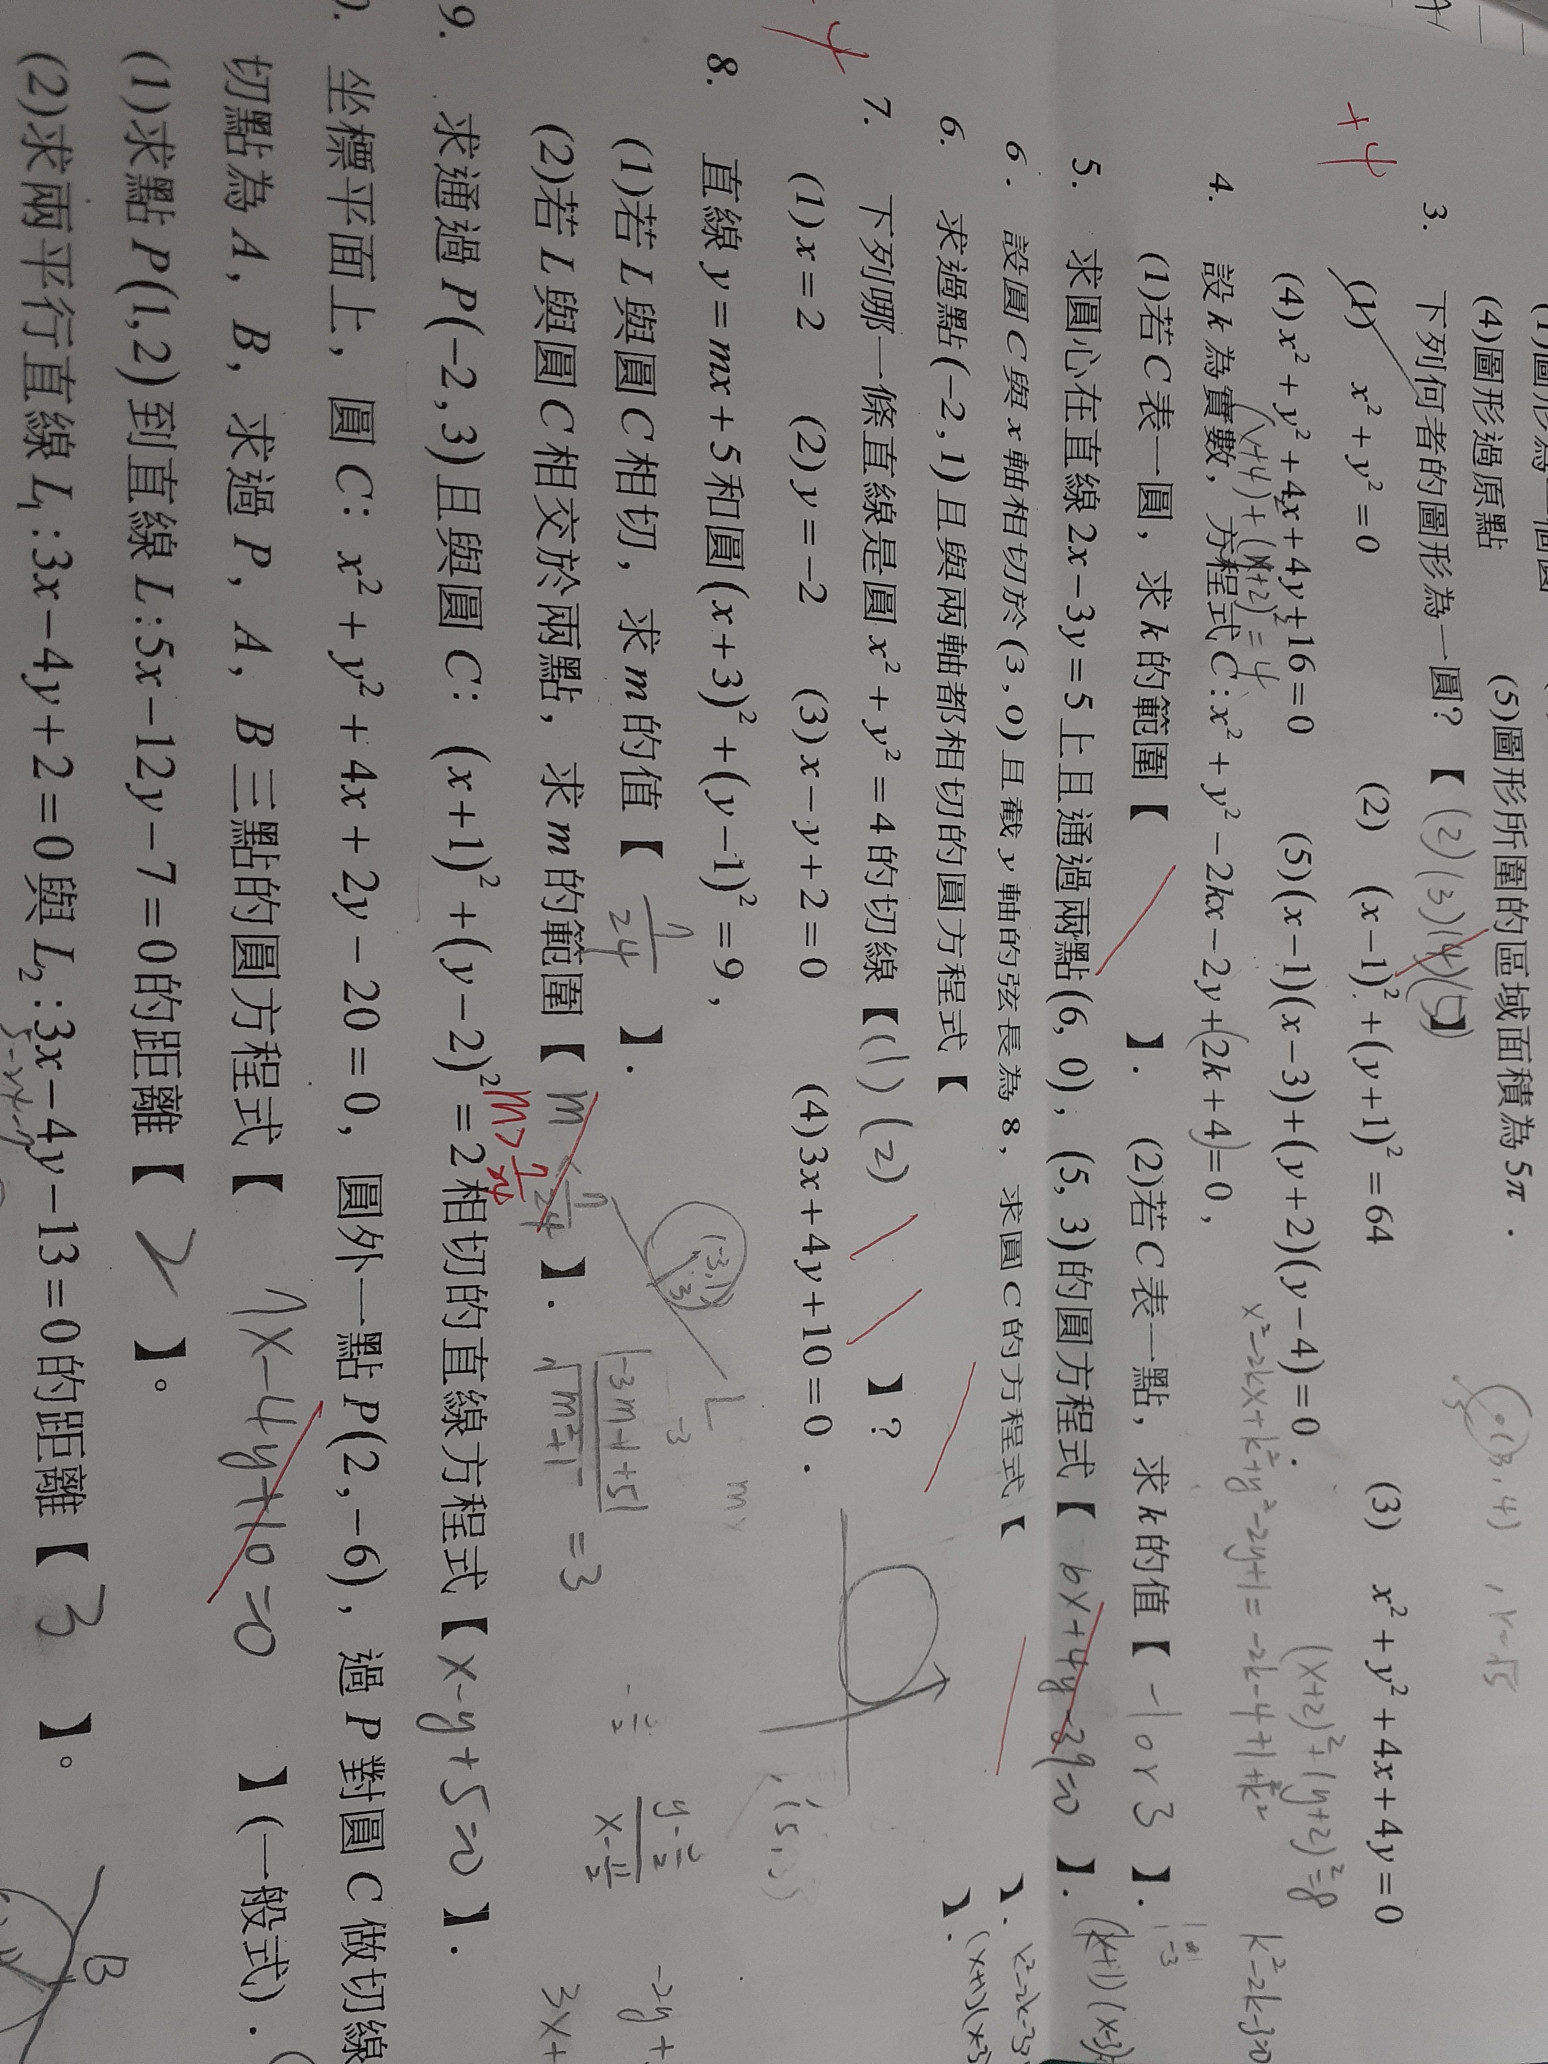 (4)圖形過原點 (5)圖形所圍的區域面積為 5π．
+4
3. 下列何者的圖形為一圓？【 (2)(3)(4)(5) 】
(1) x² + y² = 0 (2) (x−1)² + (y+1)² = 64 (3) x² + y² + 4x + 4y = 0
(4) x² + y² + 4x + 4y + 16 = 0 (5) (x−1)(x−3) + (y+2)(y−4) = 0．
(x+2)² + (y+2)² = 8
(x+4)² + (y+2)² = 4
4. 設 k 為實數，方程式 C : x² + y² − 2kx − 2y + (2k+4) = 0，
x² − 2kx + k² + y² − 2y + 1 = −2k − 4 + 1 + k²
k² − 2k − 3 > 0
(1)若 C 表一圓，求 k 的範圍【 】． (2)若 C 表一點，求 k 的值【 −1 or 3 】．
5. 求圓心在直線 2x − 3y = 5 上且通過兩點 (6, 0)，(5, 3) 的圓方程式【 6x+4y−39=0 】．
6. 設圓 C 與 x 軸相切於 (3, 0) 且截 y 軸的弦長為 8，求圓 C 的方程式【 】．
6. 求過點 (−2, 1) 且與兩軸都相切的圓方程式【 】．
7. 下列哪一條直線是圓 x² + y² = 4 的切線【 (1) (2) 】？
(1) x = 2 (2) y = −2 (3) x − y + 2 = 0 (4) 3x + 4y + 10 = 0．
8. 直線 y = mx + 5 和圓 (x+3)² + (y−1)² = 9，
(1)若 L 與圓 C 相切，求 m 的值【 7/24 】．
(2)若 L 與圓 C 相交於兩點，求 m 的範圍【 m < 7/24 】．
m > 7/24
(−3,1)
3
L
|−3m−1+5| / √(m²+1) = 3
9. 求通過 P(−2, 3) 且與圓 C： (x+1)² + (y−2)² = 2 相切的直線方程式【 x−y+5=0 】．
坐標平面上，圓 C： x² + y² + 4x + 2y − 20 = 0，圓外一點 P(2, −6)，過 P 對圓 C 做切線
切點為 A，B，求過 P，A，B 三點的圓方程式【 7x−4y+10=0 】(一般式)．
(1)求點 P(1, 2) 到直線 L : 5x − 12y − 7 = 0 的距離【 2 】。
(2)求兩平行直線 L₁ : 3x − 4y + 2 = 0 與 L₂ : 3x − 4y − 13 = 0 的距離【 3 】。
B